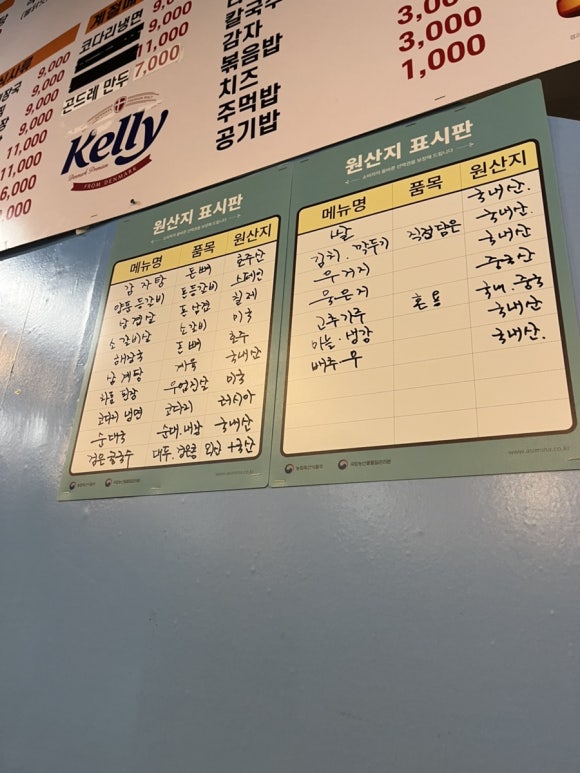 9,000
계절메
코다리냉면
9,000
11,000
9,000
9,000
곤드레 만두 7,000
11,000
11,000
6,000
Kelly
FROM DENMARK
감자
볶음밥
치즈
주먹밥
공기밥
3,000
3,000
1,000
원산지 표시판
메뉴명 품목 원산지
감자탕 돈뼈 호주산
양푼등갈비 돈등갈비 스페인
삼겹살 돈삼겹 칠레
소갈비살 소갈비 미국
해장국 돈뼈 호주
삼계탕 계육 국내산
차돌된장 우업진살 미국
코다리 냉면 코다리 러시아
순대국 순대.내장 국내산
검은콩국수 대두.검은콩 외산+국산
원산지 표시판
메뉴명 품목 원산지
쌀 국내산.
김치.깍두기 직접담은 국내산.
우거지 국내산
묵은지 중국산
고추가루 혼용 국내.중국
마늘.생강 국내산.
배추.무
농림축산식품부 국립농산물품질관리원